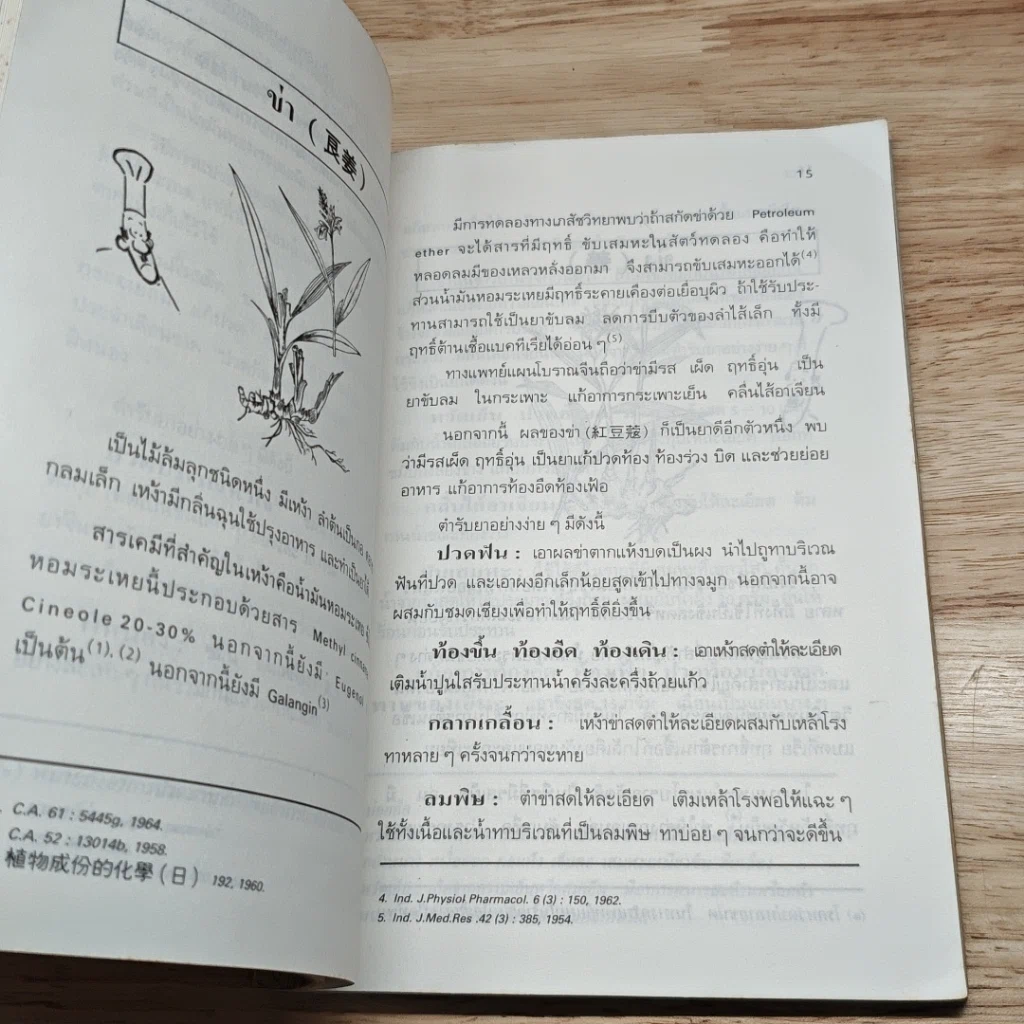 ข่า (良姜)
เป็นไม้ล้มลุกชนิดหนึ่ง มีเหง้า ลำต้นเป็นกอ
กลมเล็ก เหง้ามีกลิ่นฉุนใช้ปรุงอาหาร และทำเป็นยาได้
สารเคมีที่สำคัญในเหง้าคือน้ำมันหอมระเหย
หอมระเหยนี้ประกอบด้วยสาร Methyl
Cineole 20-30% นอกจากนี้ยังมี Eugenol
เป็นต้น(1),(2) นอกจากนี้ยังมี Galangin(3)
C.A. 61 : 5445g, 1964.
C.A. 52 : 13014b, 1958.
植物成份的化學(日) 192, 1960.
15
มีการทดลองทางเภสัชวิทยาพบว่าถ้าสกัดข่าด้วย Petroleum
ether จะได้สารที่มีฤทธิ์ ขับเสมหะในสัตว์ทดลอง คือทำให้
หลอดลมมีของเหลวหลั่งออกมา จึงสามารถขับเสมหะออกได้(4)
ส่วนน้ำมันหอมระเหยมีฤทธิ์ระคายเคืองต่อเยื่อบุผิว ถ้าใช้รับประ-
ทานสามารถใช้เป็นยาขับลม ลดการบีบตัวของลำไส้เล็ก ทั้งมี
ฤทธิ์ต้านเชื้อแบคทีเรียได้อ่อน ๆ(5)
ทางแพทย์แผนโบราณจีนถือว่าข่ามีรส เผ็ด ฤทธิ์อุ่น เป็น
ยาขับลม ในกระเพาะ แก้อาการกระเพาะเย็น คลื่นไส้อาเจียน
นอกจากนี้ ผลของข่า (紅豆蔻) ก็เป็นยาดีอีกตัวหนึ่ง พบ
ว่ามีรสเผ็ด ฤทธิ์อุ่น เป็นยาแก้ปวดท้อง ท้องร่วง บิด และช่วยย่อย
อาหาร แก้อาการท้องอืดท้องเฟ้อ
ตำรับยาอย่างง่าย ๆ มีดังนี้
ปวดฟัน : เอาผลข่าตากแห้งบดเป็นผง นำไปถูทาบริเวณ
ฟันที่ปวด และเอาผงอีกเล็กน้อยสูดเข้าไปทางจมูก นอกจากนี้อาจ
ผสมกับชมดเชียงเพื่อทำให้ฤทธิ์ดียิ่งขึ้น
ท้องขึ้น ท้องอืด ท้องเดิน : เอาเหง้าสดตำให้ละเอียด
เติมน้ำปูนใสรับประทานน้ำครั้งละครึ่งถ้วยแก้ว
กลากเกลื้อน : เหง้าข่าสดตำให้ละเอียดผสมกับเหล้าโรง
ทาหลาย ๆ ครั้งจนกว่าจะหาย
ลมพิษ : ตำข่าสดให้ละเอียด เติมเหล้าโรงพอให้แฉะ ๆ
ใช้ทั้งเนื้อและน้ำทาบริเวณที่เป็นลมพิษ ทาบ่อย ๆ จนกว่าจะดีขึ้น
4. Ind. J.Physiol Pharmacol. 6 (3) : 150, 1962.
5. Ind. J.Med.Res .42 (3) : 385, 1954.